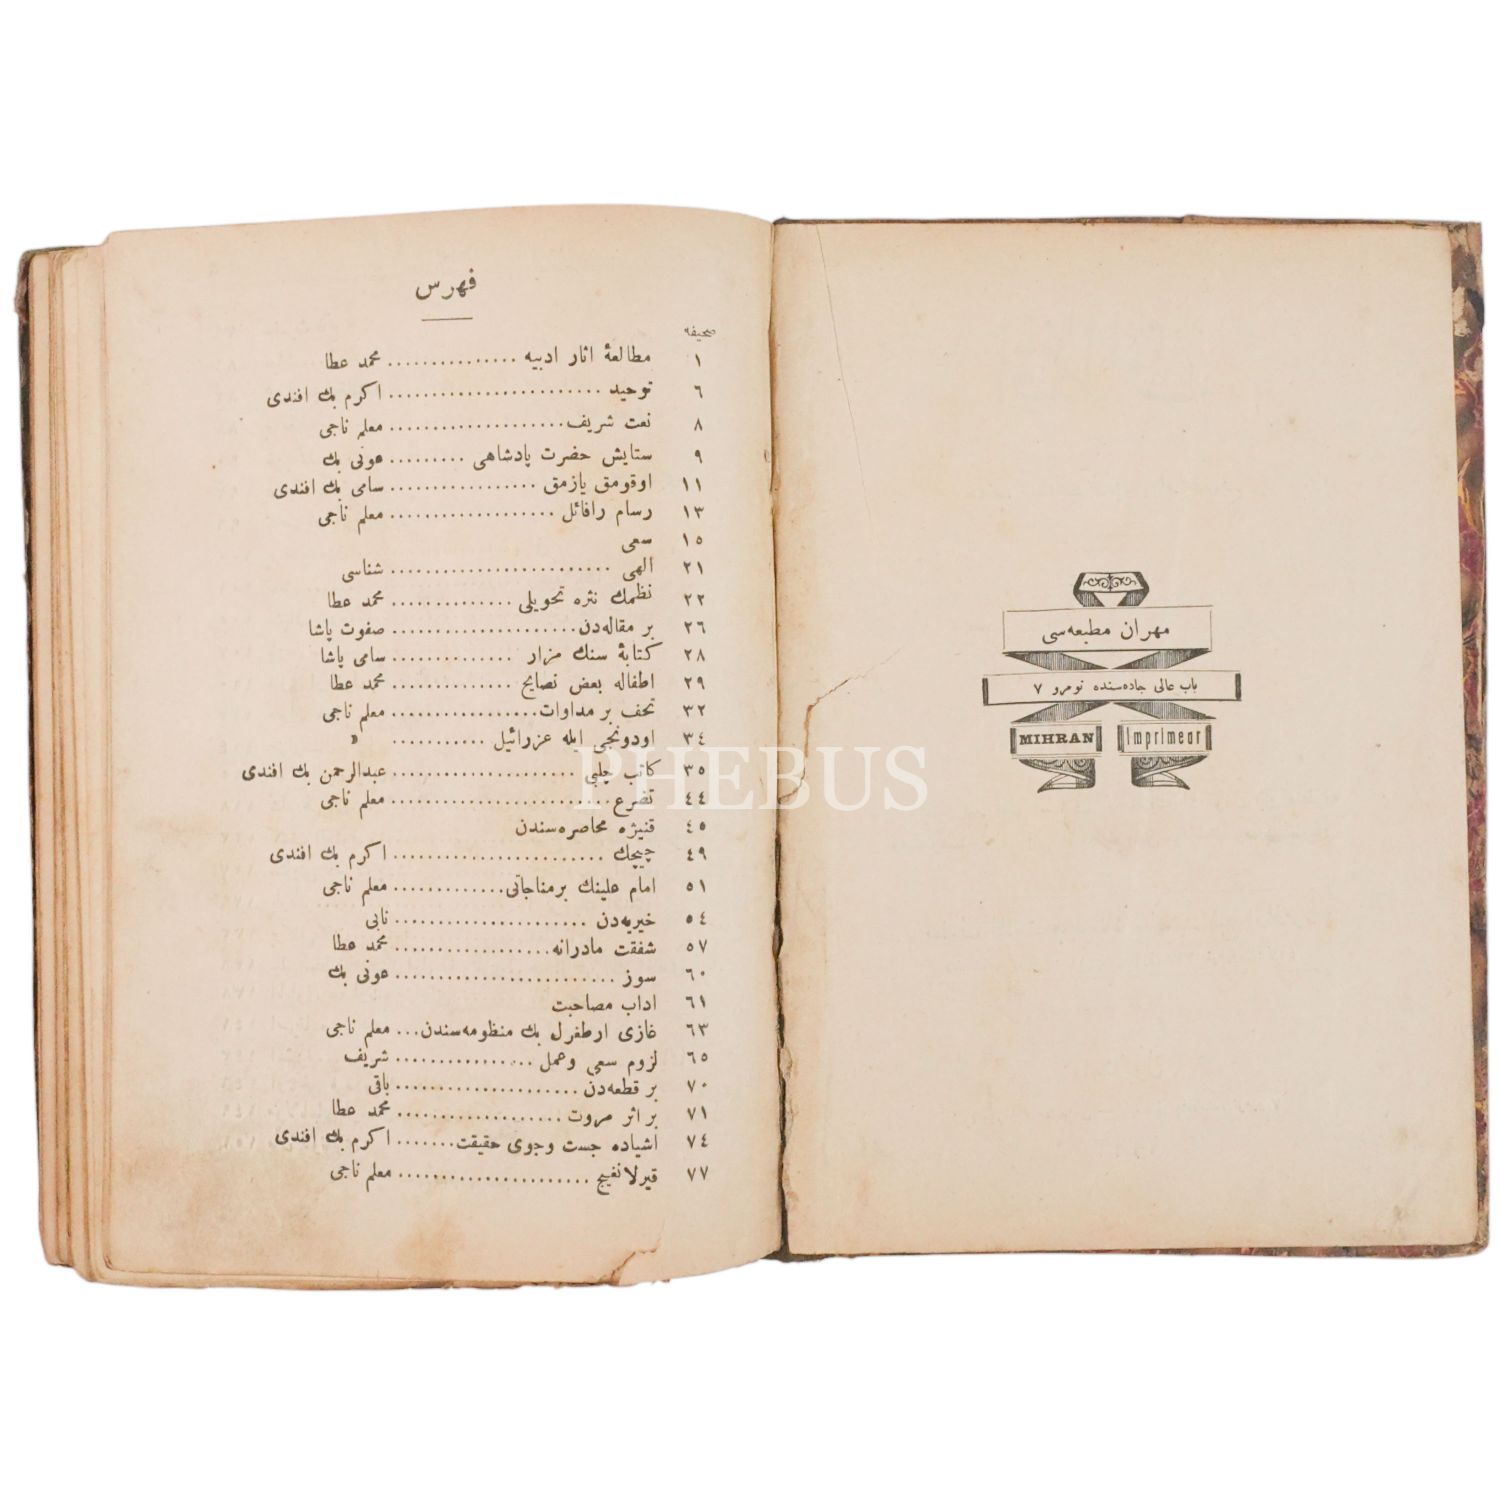 مهران مطبعه‌سی
باب عالی جاده‌سنده نومرو ٧
MIHRAN Imprimear
فهرس
صحیفه
١ مطالعۀ اثار ادبیه ............... محمد عطا
٦ توحید ......................... اكرم بك افندی
٨ نعت شریف ..................... معلم ناجی
٩ ستایش حضرت پادشاهی ......... عونی بك
١١ اوقومق یازمق ................. سامی بك افندی
١٣ رسام رافائل ................... معلم ناجی
١٥ سعی
٢١ الهی .......................... شناسی
٢٢ نظمك نثره تحویلی .............. محمد عطا
٢٦ بر مقاله‌دن ..................... صفوت پاشا
٢٨ كتابۀ سنك مزار .............. سامی پاشا
٢٩ اطفاله بعض نصایح .............. محمد عطا
٣٢ تحف بر مداوات ................. معلم ناجی
٣٤ اودونجی ایله عزرائیل ........... »
٣٥ كاتب چلبی ..................... عبدالرحمن بك افندی
٤٤ تضرع ......................... معلم ناجی
٤٥ قنیژه محاصره‌سندن
٤٩ چیچك ......................... اكرم بك افندی
٥١ امام علینك برمناجاتی ............. معلم ناجی
٥٤ خیریه‌دن ...................... نابی
٥٧ شفقت مادرانه .................. محمد عطا
٦٠ سوز .......................... عونی بك
٦١ اداب مصاحبت
٦٣ غازی ارطغرل بك منظومه‌سندن ... معلم ناجی
٦٥ لزوم سعی وعمل ................ شریف
٧٠ بر قطعه‌دن ..................... باقی
٧١ بر اثر مروت ................... محمد عطا
٧٤ اشیاده جست وجوی حقیقت ....... اكرم بك افندی
٧٧ قیرلانغیج ...................... معلم ناجی
PHEBUS